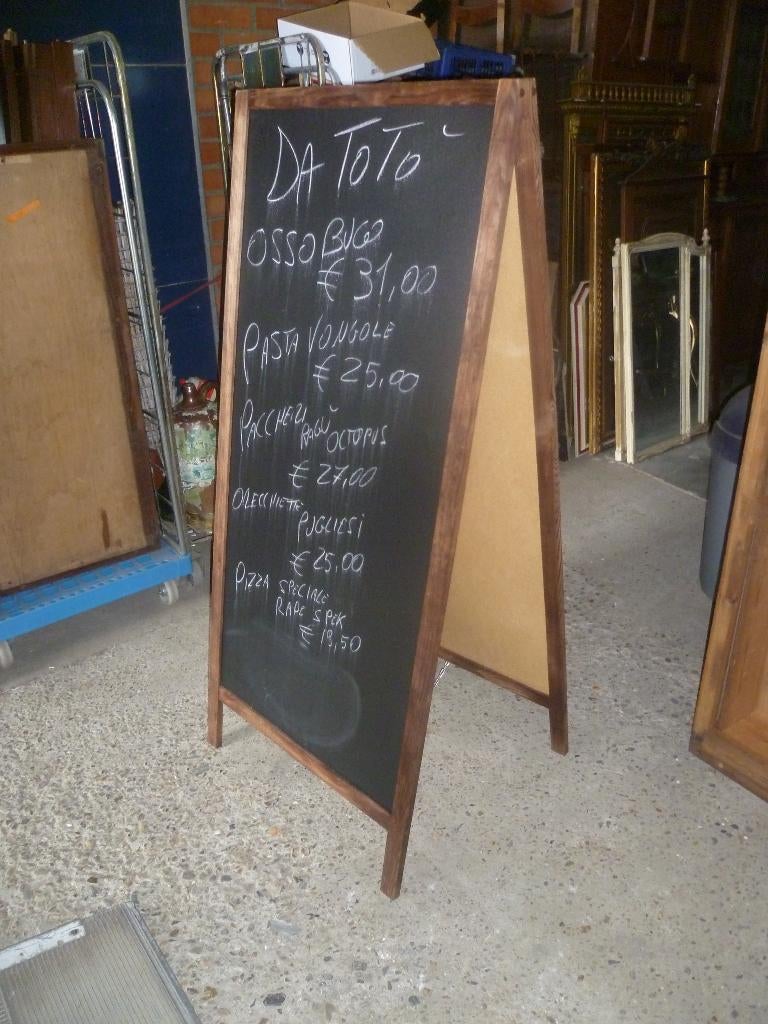 DA TOTÒ
OSSO BUGO
€ 31,00
PASTA VONGOLE
€ 25,00
PACCHERI RAGÙ OCTOPUS
€ 27,00
ORECCHIETTE
PUGLIESI
€ 25,00
PIZZA SPECIALE
RAPE SPEK
€ 19,50